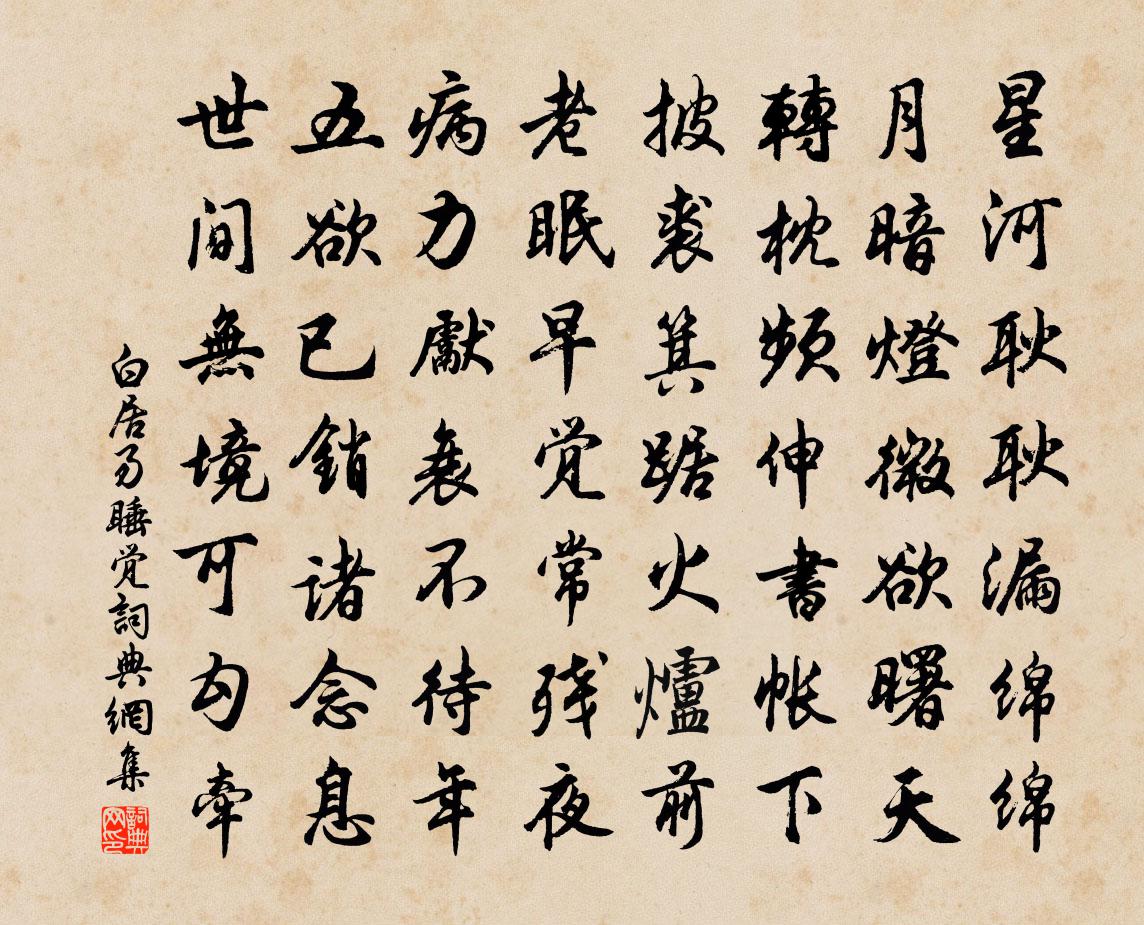 星河耿耿漏綿綿
月暗燈微欲曙天
轉枕頻伸書帳下
披裘箕踞火爐前
老眠早觉常残夜
病力獻衰不待年
五欲已銷諸念息
世間無境可勾牽
白居易睡觉詞典網集
詞典网印